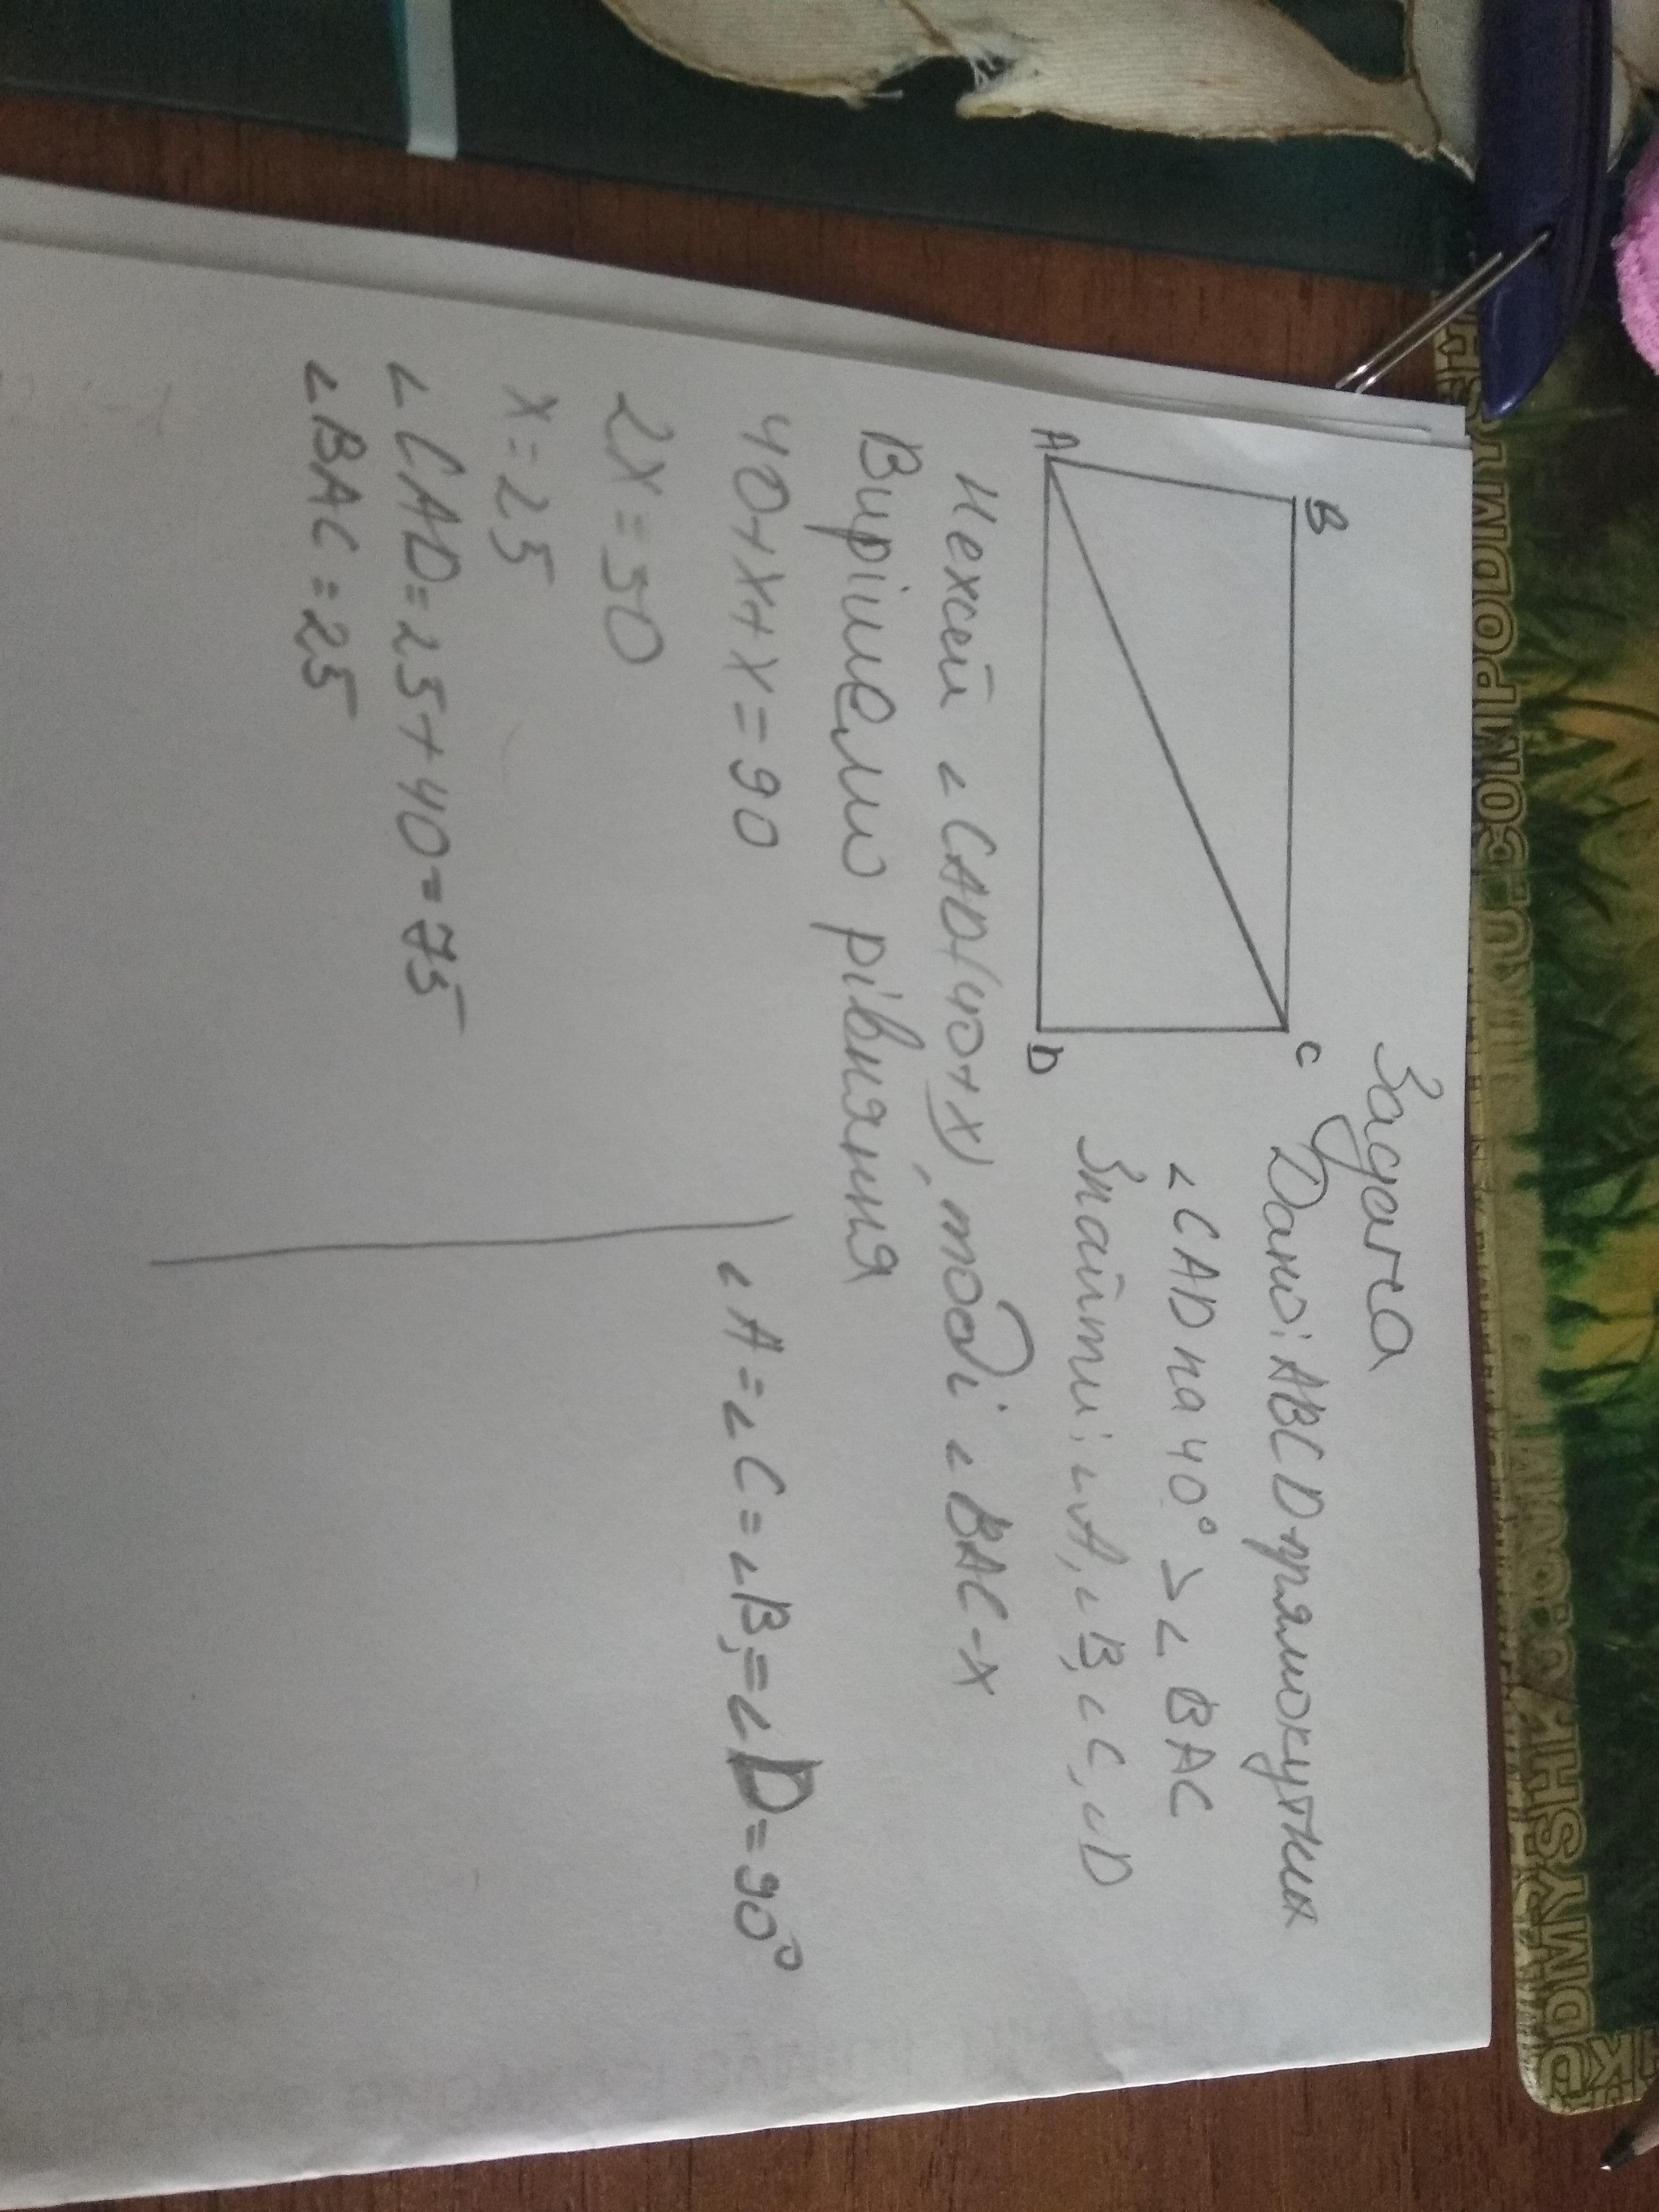 Задача
B
C
A
D
Дано: ABCD-прямокутник
∠CAD на 40° > ∠BAC
Знайти: ∠A, ∠B, ∠C, ∠D
Нехай ∠CAD(40+x), тоді ∠BAC-x
Вирішемо рівняння
40+x+x=90
2x=50
x=25
∠CAD=25+40=75
∠BAC=25
∠A=∠C=∠B,=∠D=90°